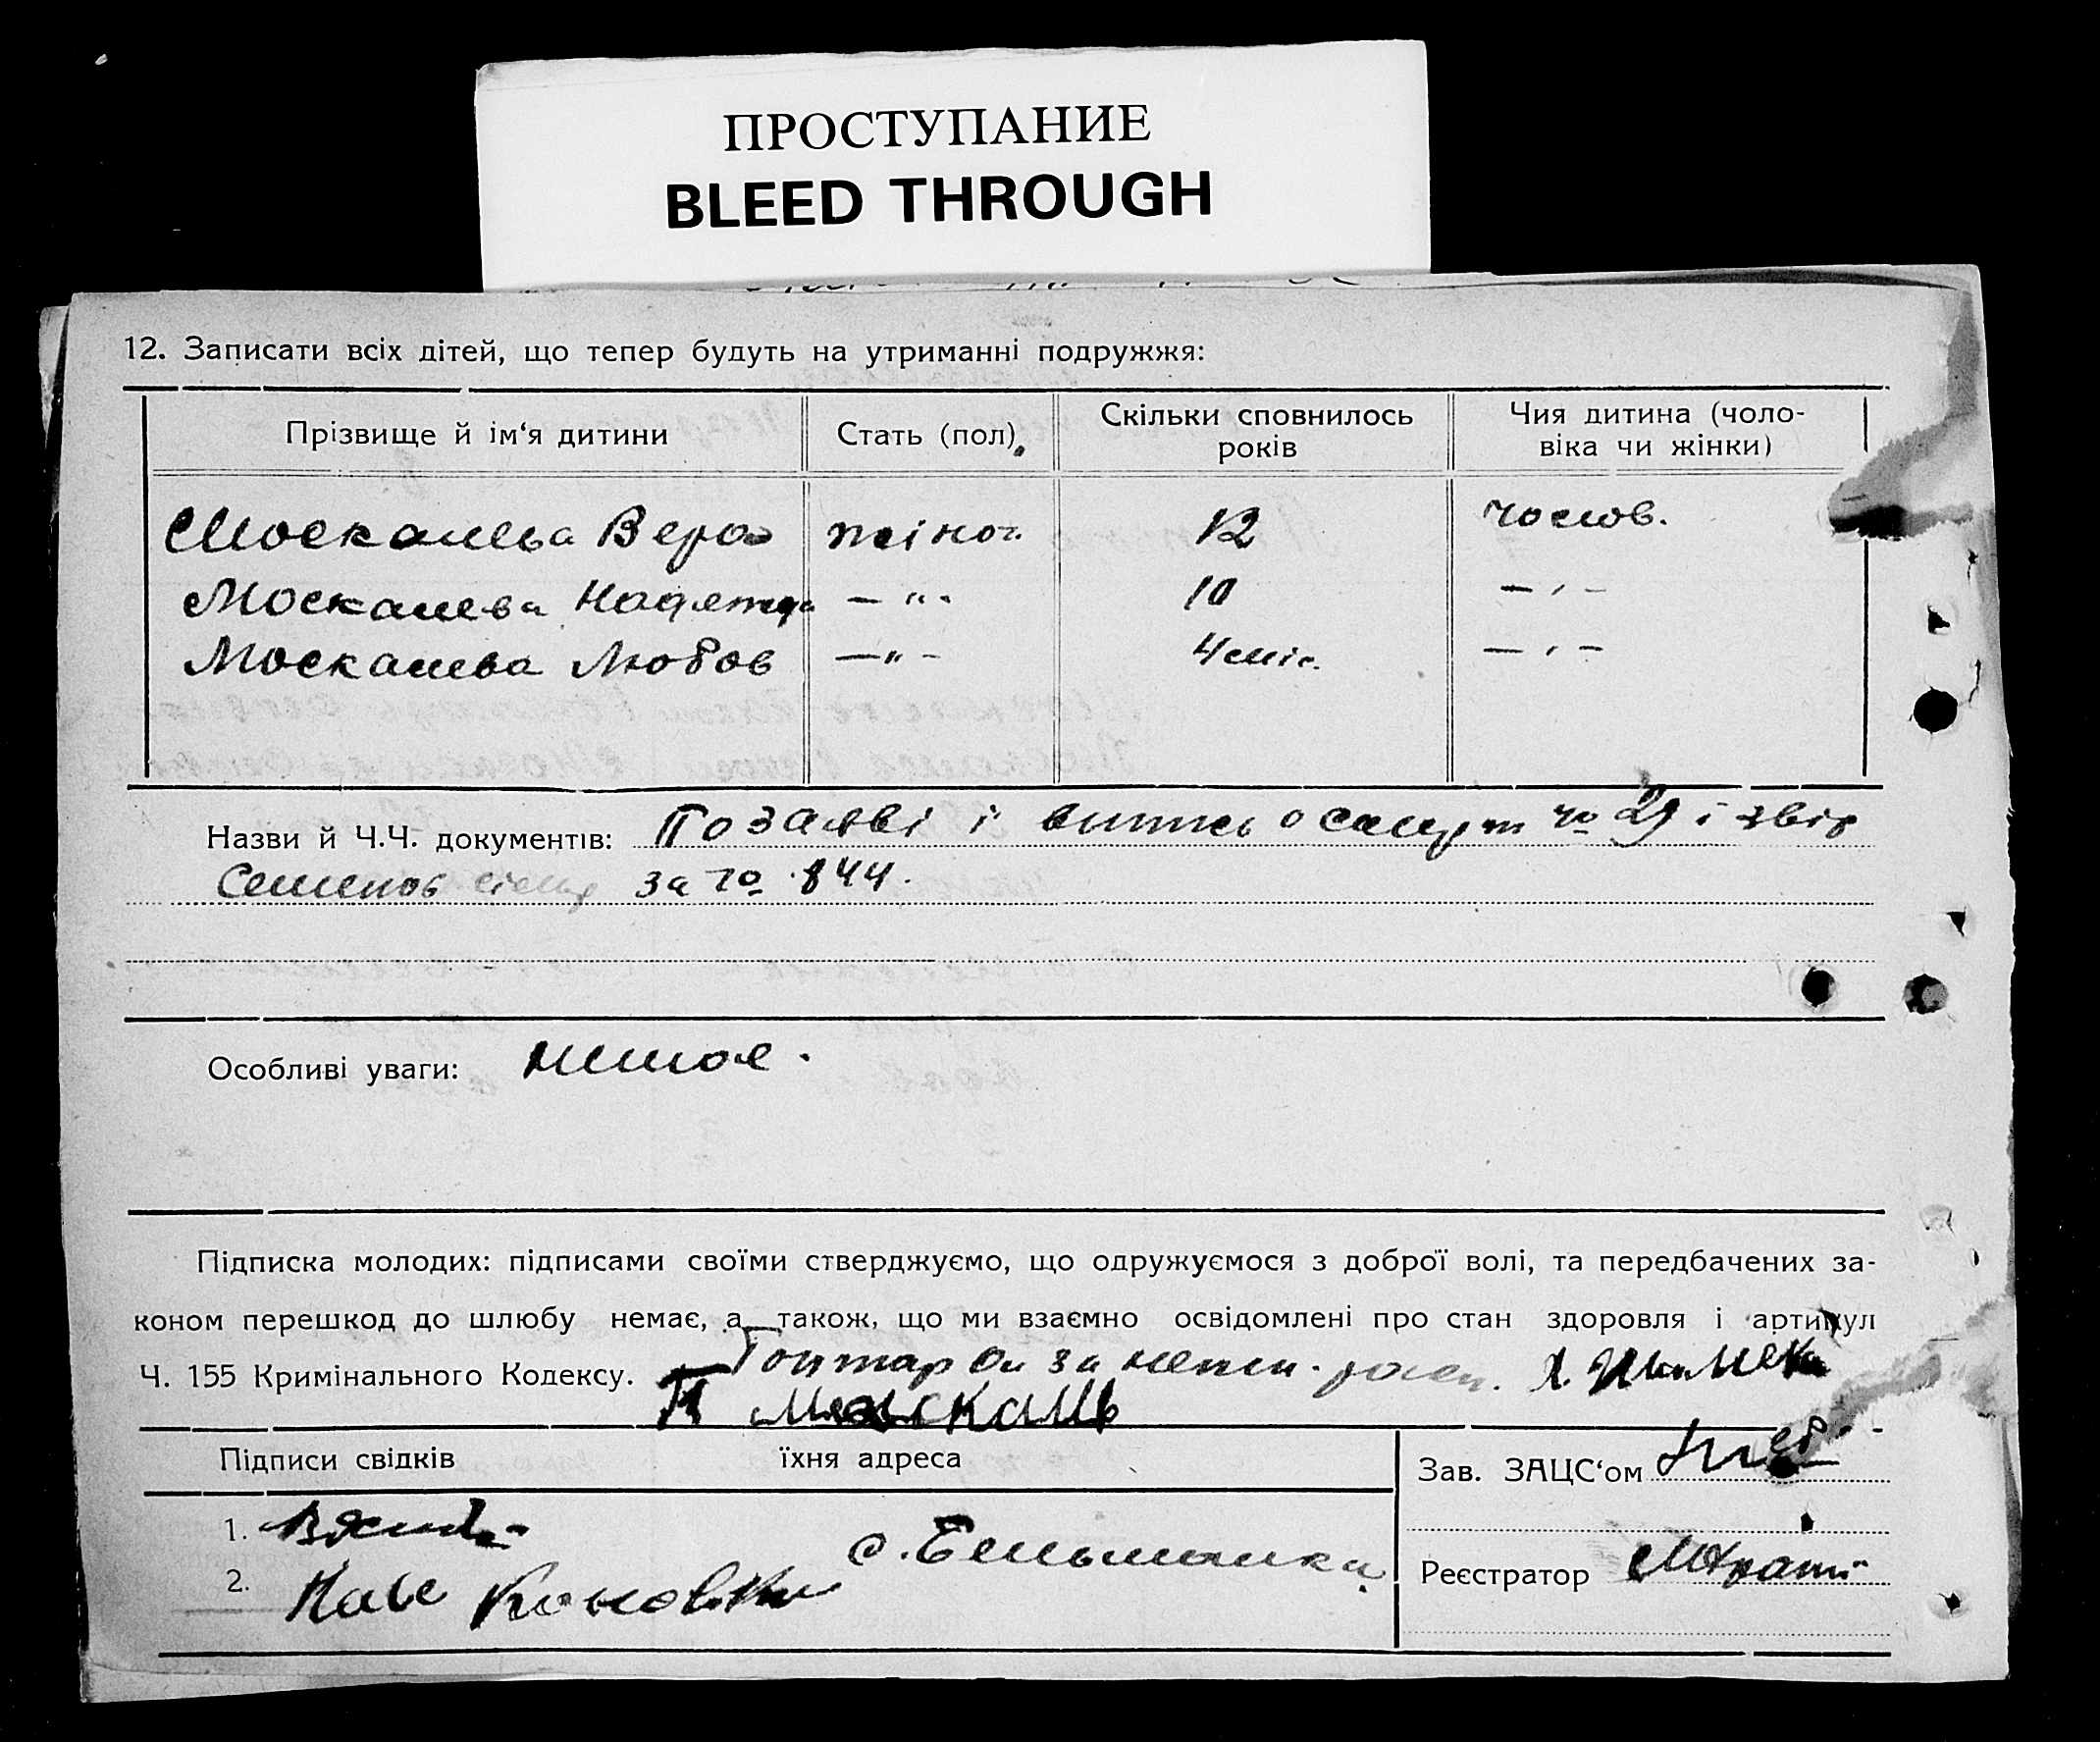 ПРОСТУПАНИЕ
BLEED THROUGH
12. Записати всіх дітей, що тепер будуть на утриманні подружжя:
Прізвище й ім‘я дитини Стать (пол) Скільки сповнилось років Чия дитина (чоло-віка чи жінки)
Москалева Вера жіноч. 12 чолов.
Москалева Надежда — " - 10 — ' —
Москалева Любов — " - 4 міс. — ' —
Назви й Ч.Ч. документів: По заяві і о 29 і
за № 844.
Особливі уваги: немає.
Підписка молодих: підписами своїми стверджуємо, що одружуємося з доброї волі, та передбачених за-
коном перешкод до шлюбу немає, а також, що ми взаємно освідомлені про стан здоровля і артикул
Ч. 155 Кримінального Кодексу. за
Підписи свідків їхня адреса
Зав. ЗАЦС‘ом
1.
2.
Реєстратор